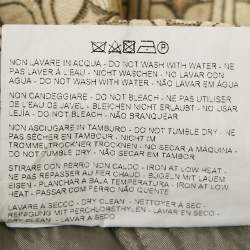 NON LAVARE IN ACQUA - DO NOT WASH WITH WATER - NE
PAS LAVER À L'EAU - NICHT WASCHEN - NO LAVAR CON
AGUA - DO NOT WASH WITH WATER - NÃO LAVAR EM ÁGUA
NON CANDEGGIARE - DO NOT BLEACH - NE PAS UTILISER
DE L'EAU DE JAVEL - BLEICHEN NICHT ERLAUBT - NO USAR
LEJÍA - DO NOT BLEACH - NÃO BRANQUEAR
NON ASCIUGARE IN TAMBURO - DO NOT TUMBLE DRY - NE
PAS SÉCHER EN TAMBOUR - NICHT IM
TROMMELTROCKNER TROCKNEN - NO SECAR A MÁQUINA -
DO NOT TUMBLE DRY - NÃO SECAR NO TAMBOR
STIRARE CON FERRO NON CALDO - IRON AT LOW HEAT -
NE PAS REPASSER AU FER CHAUD - BÜGELN MIT LAUEM
EISEN - PLANCHAR A BAJA TEMPERATURA - IRON AT LOW
HEAT - PASSAR COM FERRO NÃO QUENTE
LAVARE A SECCO - DRY CLEAN - NETTOYER A SEC -
REINIGUNG MIT PERCHLORETHYLEN - LAVAR EN SECO -
DRY CLEAN - LAVAR A SECO